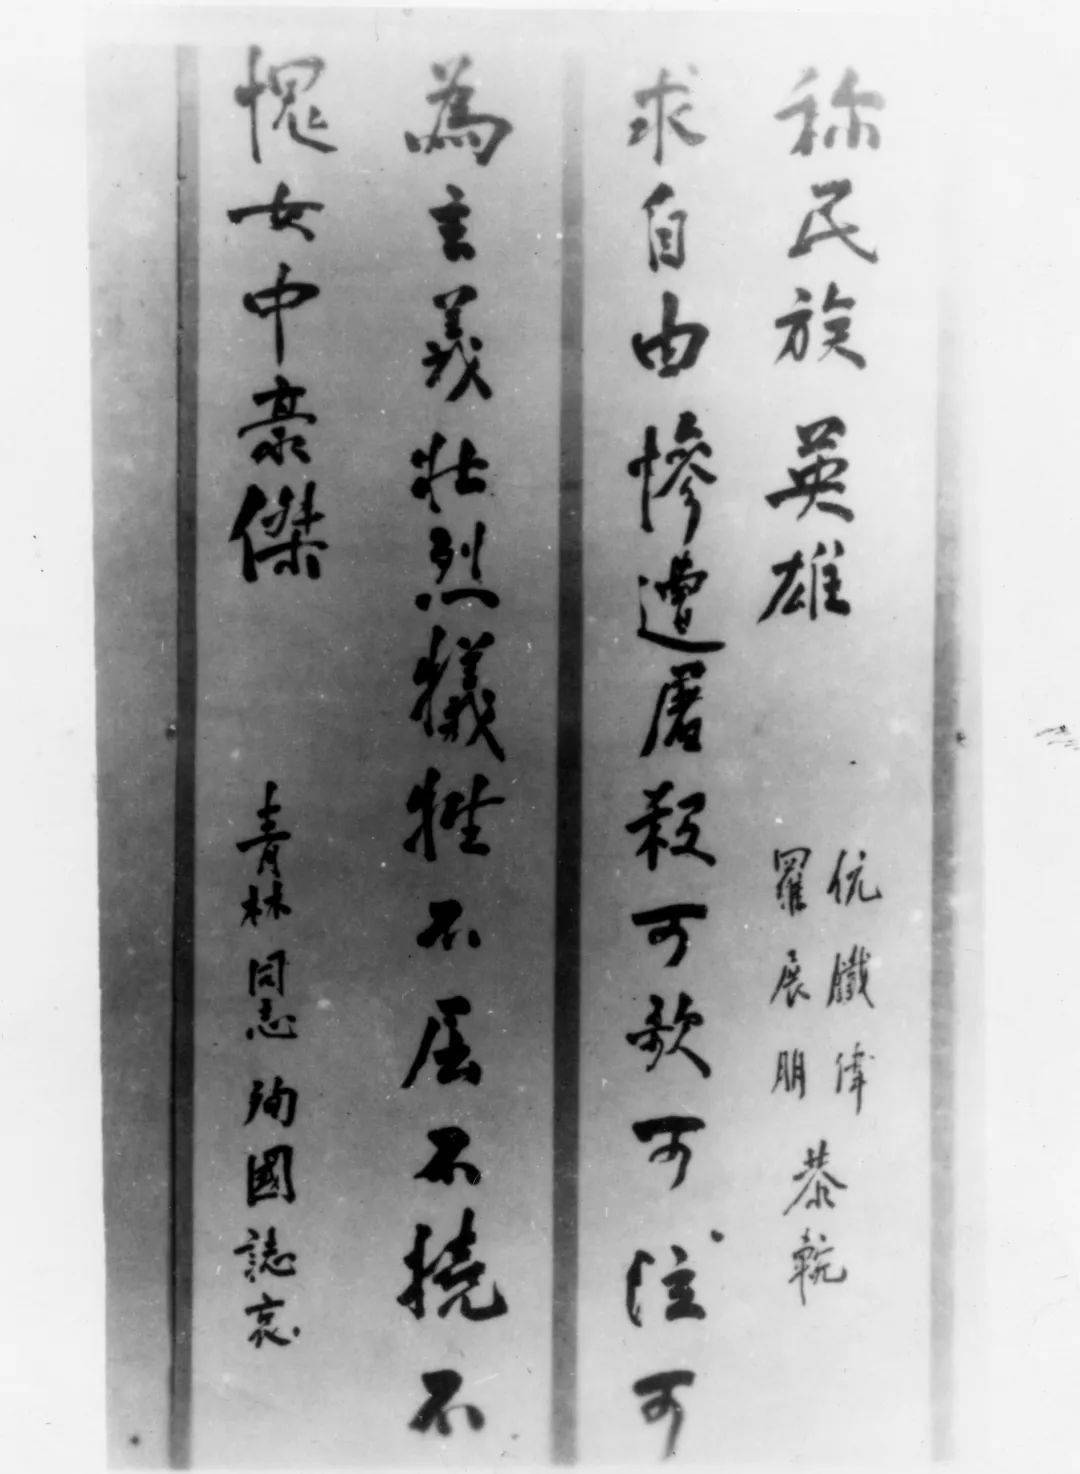 為主義壯烈犧牲不屈不撓不
愧女中豪傑
青林同志殉國誌哀
求自由慘遭屠殺可歌可泣可
称民族英雄
伉鐵偉
羅展朋
恭輓